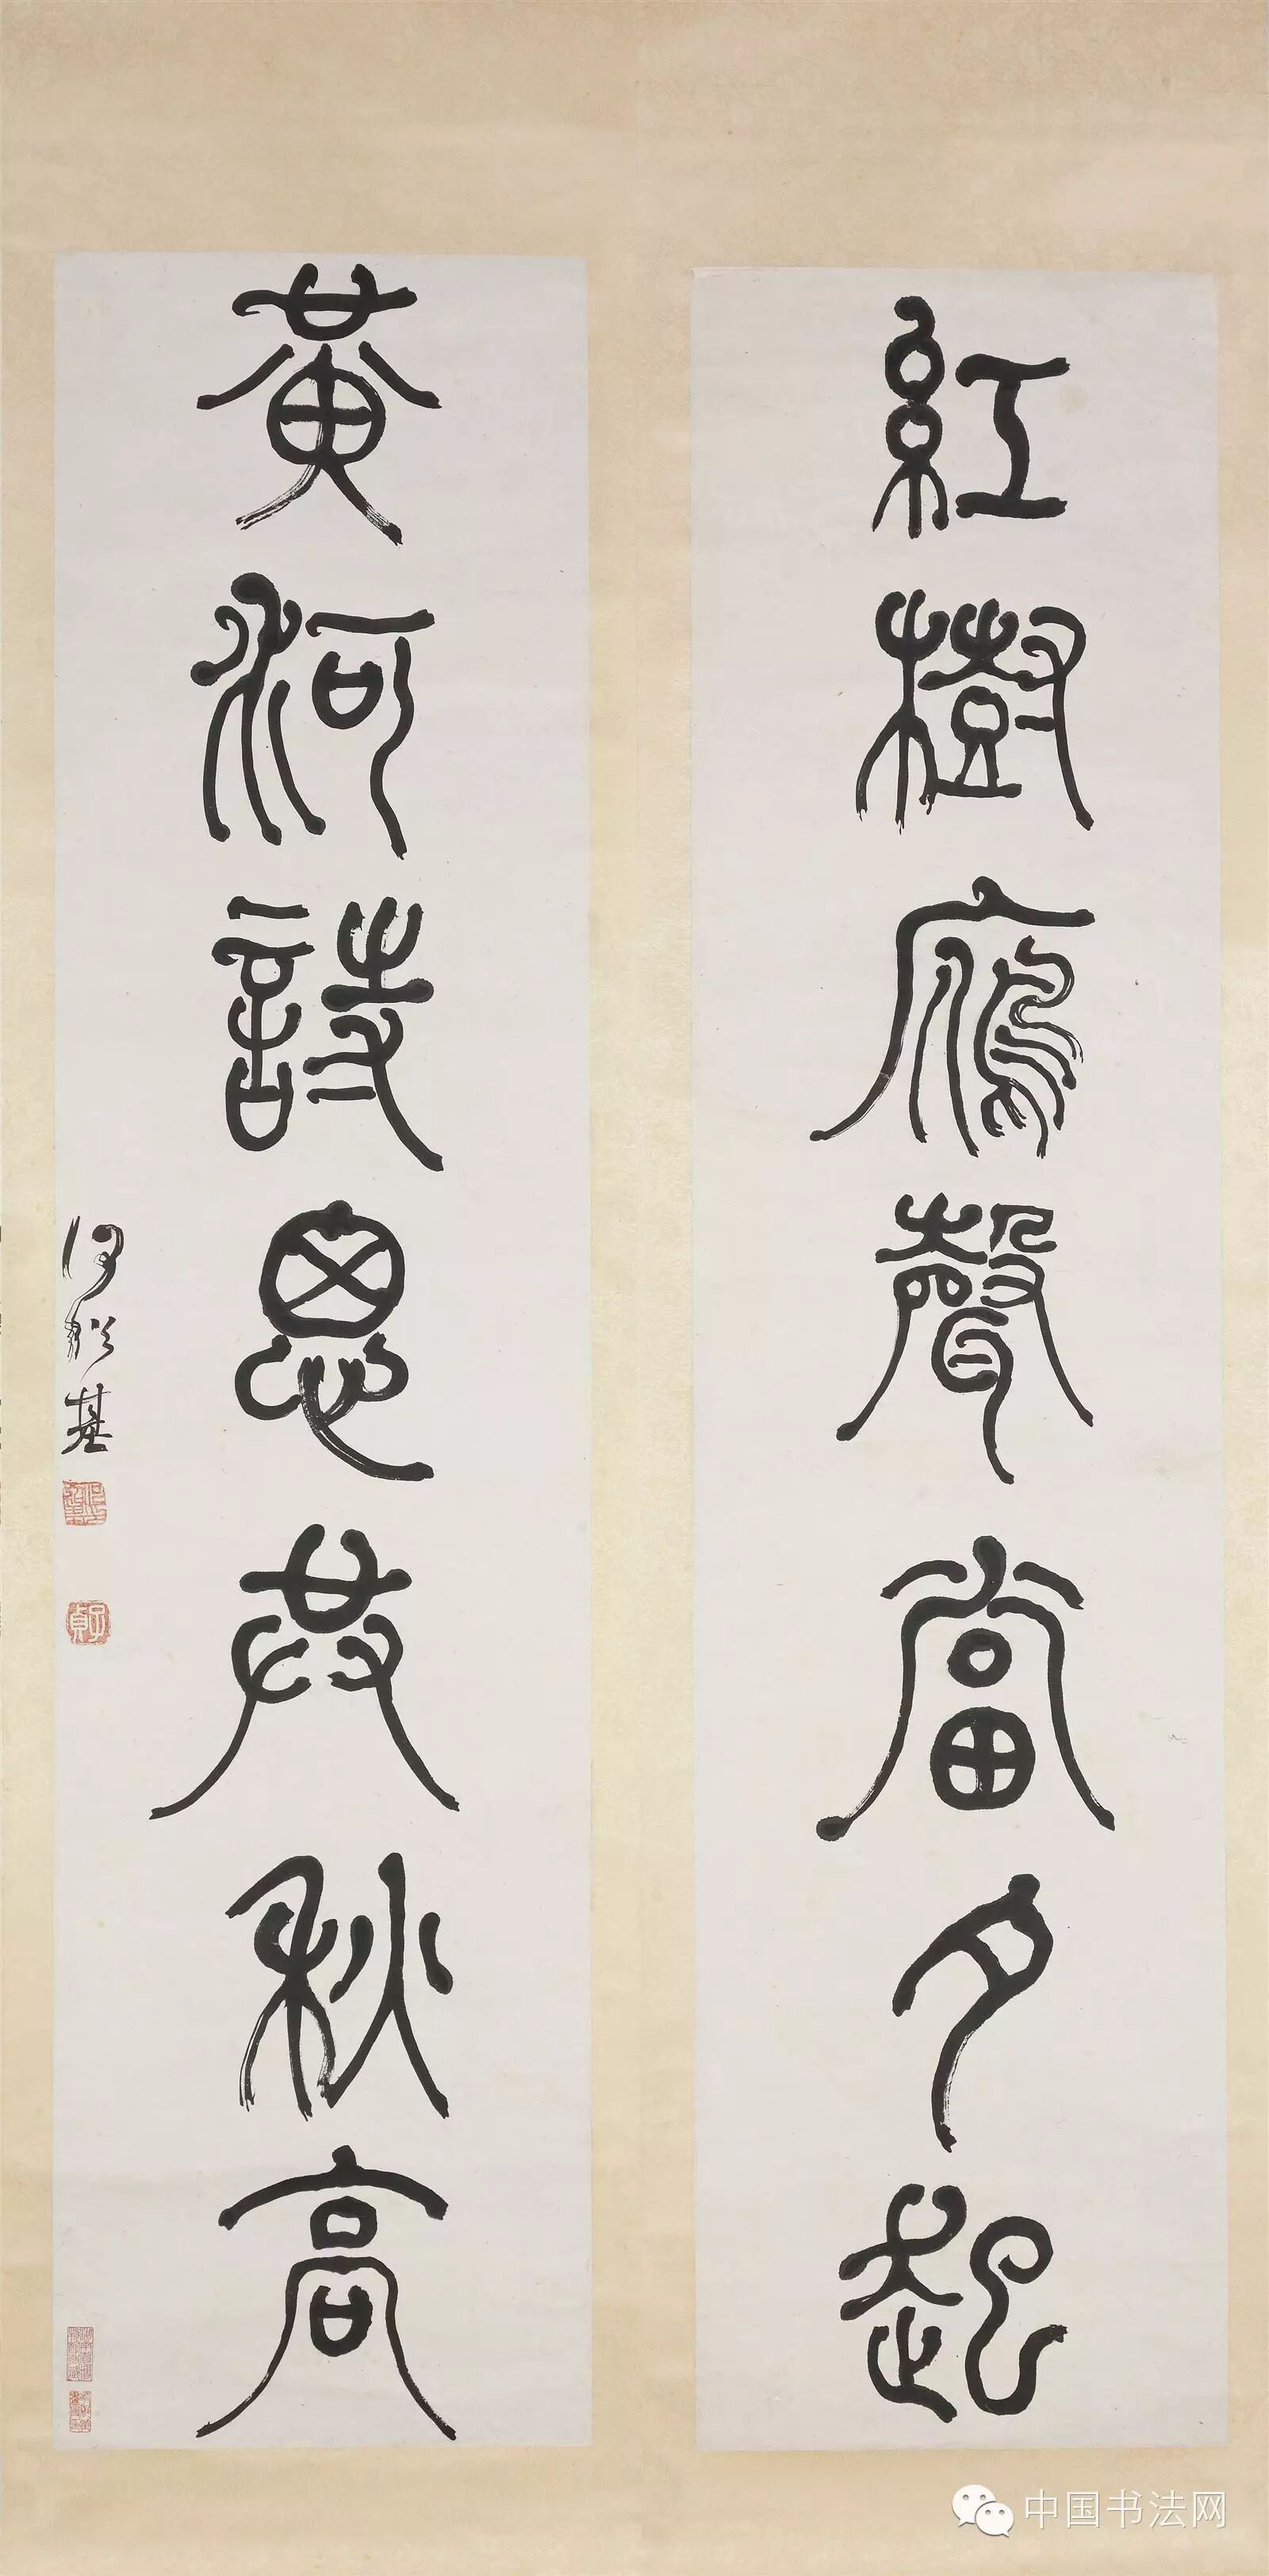 紅樹鴈聲當夕起
黃河詩思共秋高
何紹基
子貞
中国书法网